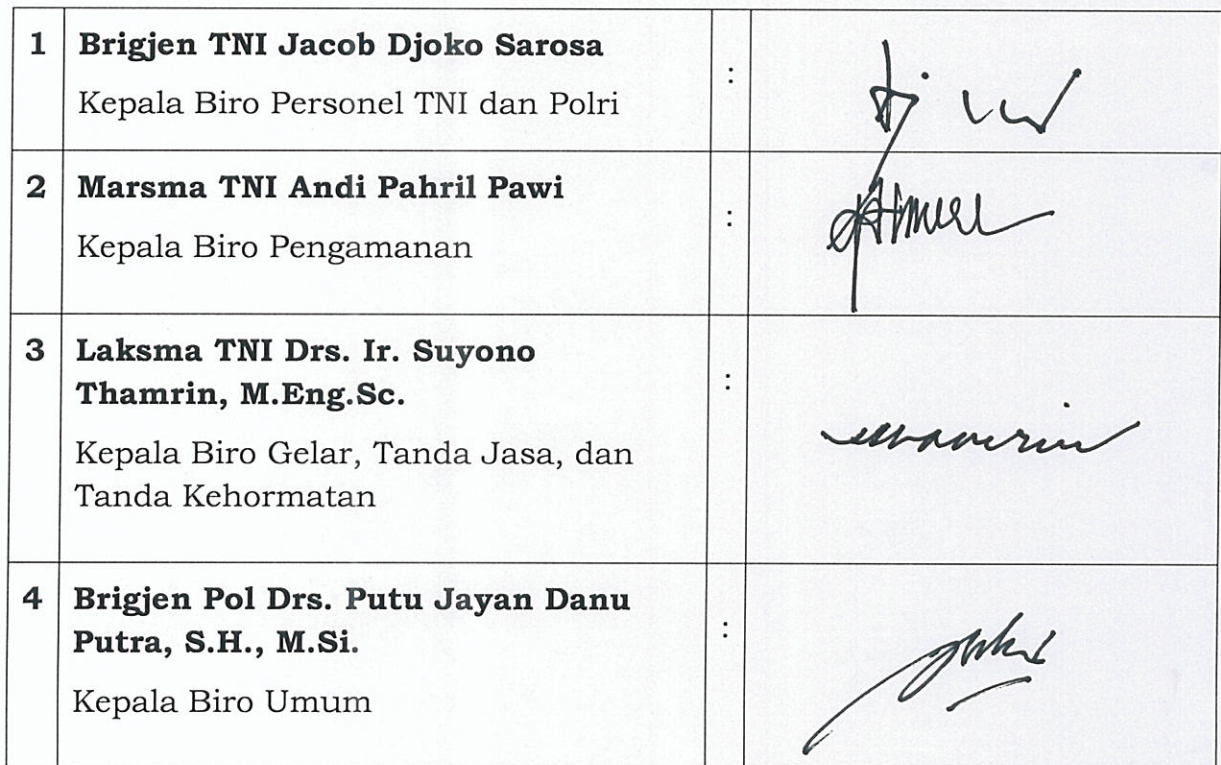 1 Brigjen TNI Jacob Djoko Sarosa :
Kepala Biro Personel TNI dan Polri
2 Marsma TNI Andi Pahril Pawi :
Kepala Biro Pengamanan
3 Laksma TNI Drs. Ir. Suyono
Thamrin, M.Eng.Sc. :
Kepala Biro Gelar, Tanda Jasa, dan
Tanda Kehormatan
4 Brigjen Pol Drs. Putu Jayan Danu
Putra, S.H., M.Si. :
Kepala Biro Umum